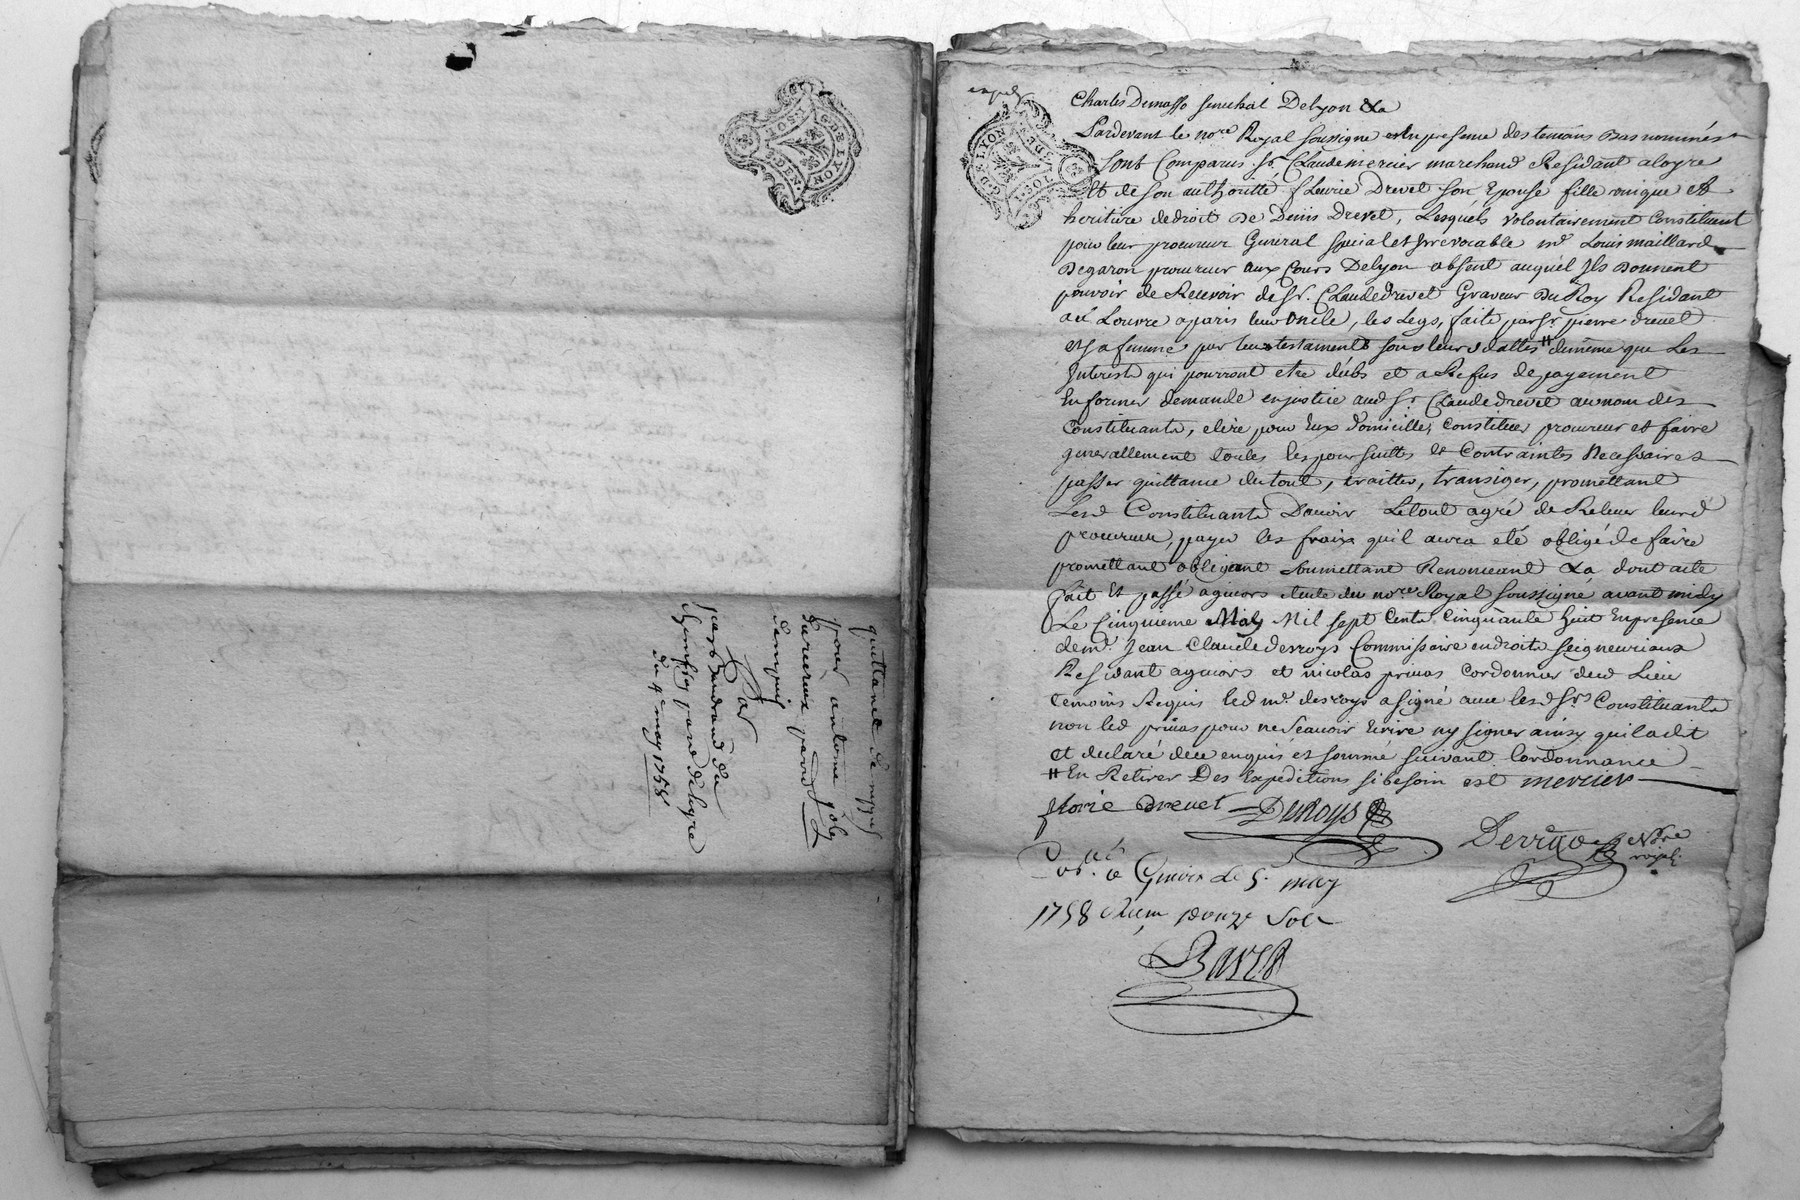 GEN. DE LYON
quittance de
pour antoine joly
Par
du 4e may 1758
expedé
G. DE LYON
Charles Demasso senechal Delyon &a
Pardevant le nore Royal soussigné et en presence des temoins Bas nommés
sont Comparus sr. Claude mercier marchand Residant a loyre
Et de son authoritté fleurie Drevet son Epouse fille unique et
heritiere de droit De Denis Drevet, Lesquels volontairement Constituant
pour leur procureur General special et Irrevocable me Louis maillard
Degaron procureur aux Cours Delyon absent auquel Ils Donnent
pouvoir de Recevoir de Sr. Claude drevet Graveur Du Roy Residant
au Louvre a paris leur oncle, les Legs, faits par sr. pierre drevet
et sa femme par leurs testaments sous leurs dattes # de même que Les
Interest qui pourront etre deubs et a Refus de payement
En former demande en justice aud sr. Claude drevet au nom des
Constituants, elire pour Eux domicille, Constituer procureur et faire
generallement toutes les poursuittes et Contraintes Necessaires
passer quittance du tout, traitter, transiger, promettant
Lesd Constituants D'avoir Le tout agré de Relever leurd
procureur, payer les fraix qu'il aura eté obligé de faire
promettant obligeant soumettant Renonceant &a dont acte
fait Et passé a givors etude du nore Royal soussigné avant midy
Le cinquieme May Mil sept Cents Cinquante huit En presence
de me. Jean Claude desroys Commissaire en droits seigneuriaux
Residant a givors et nicolas privas Cordonnier dud Lieu
temoins Requis led me. desroys a signé avec lesd srs Constituants
non led privas pour ne sçavoir Ecrire ny signer ainsy qu'il a dit
et declaré de ce enquis et sommé suivant lordonnance
# En Retirer Des Expeditions si besoin est mercier
florie Drevet DeRoys
Nore royal
Conlé a Givors Le 5. may
1758 Recu Douze Sols